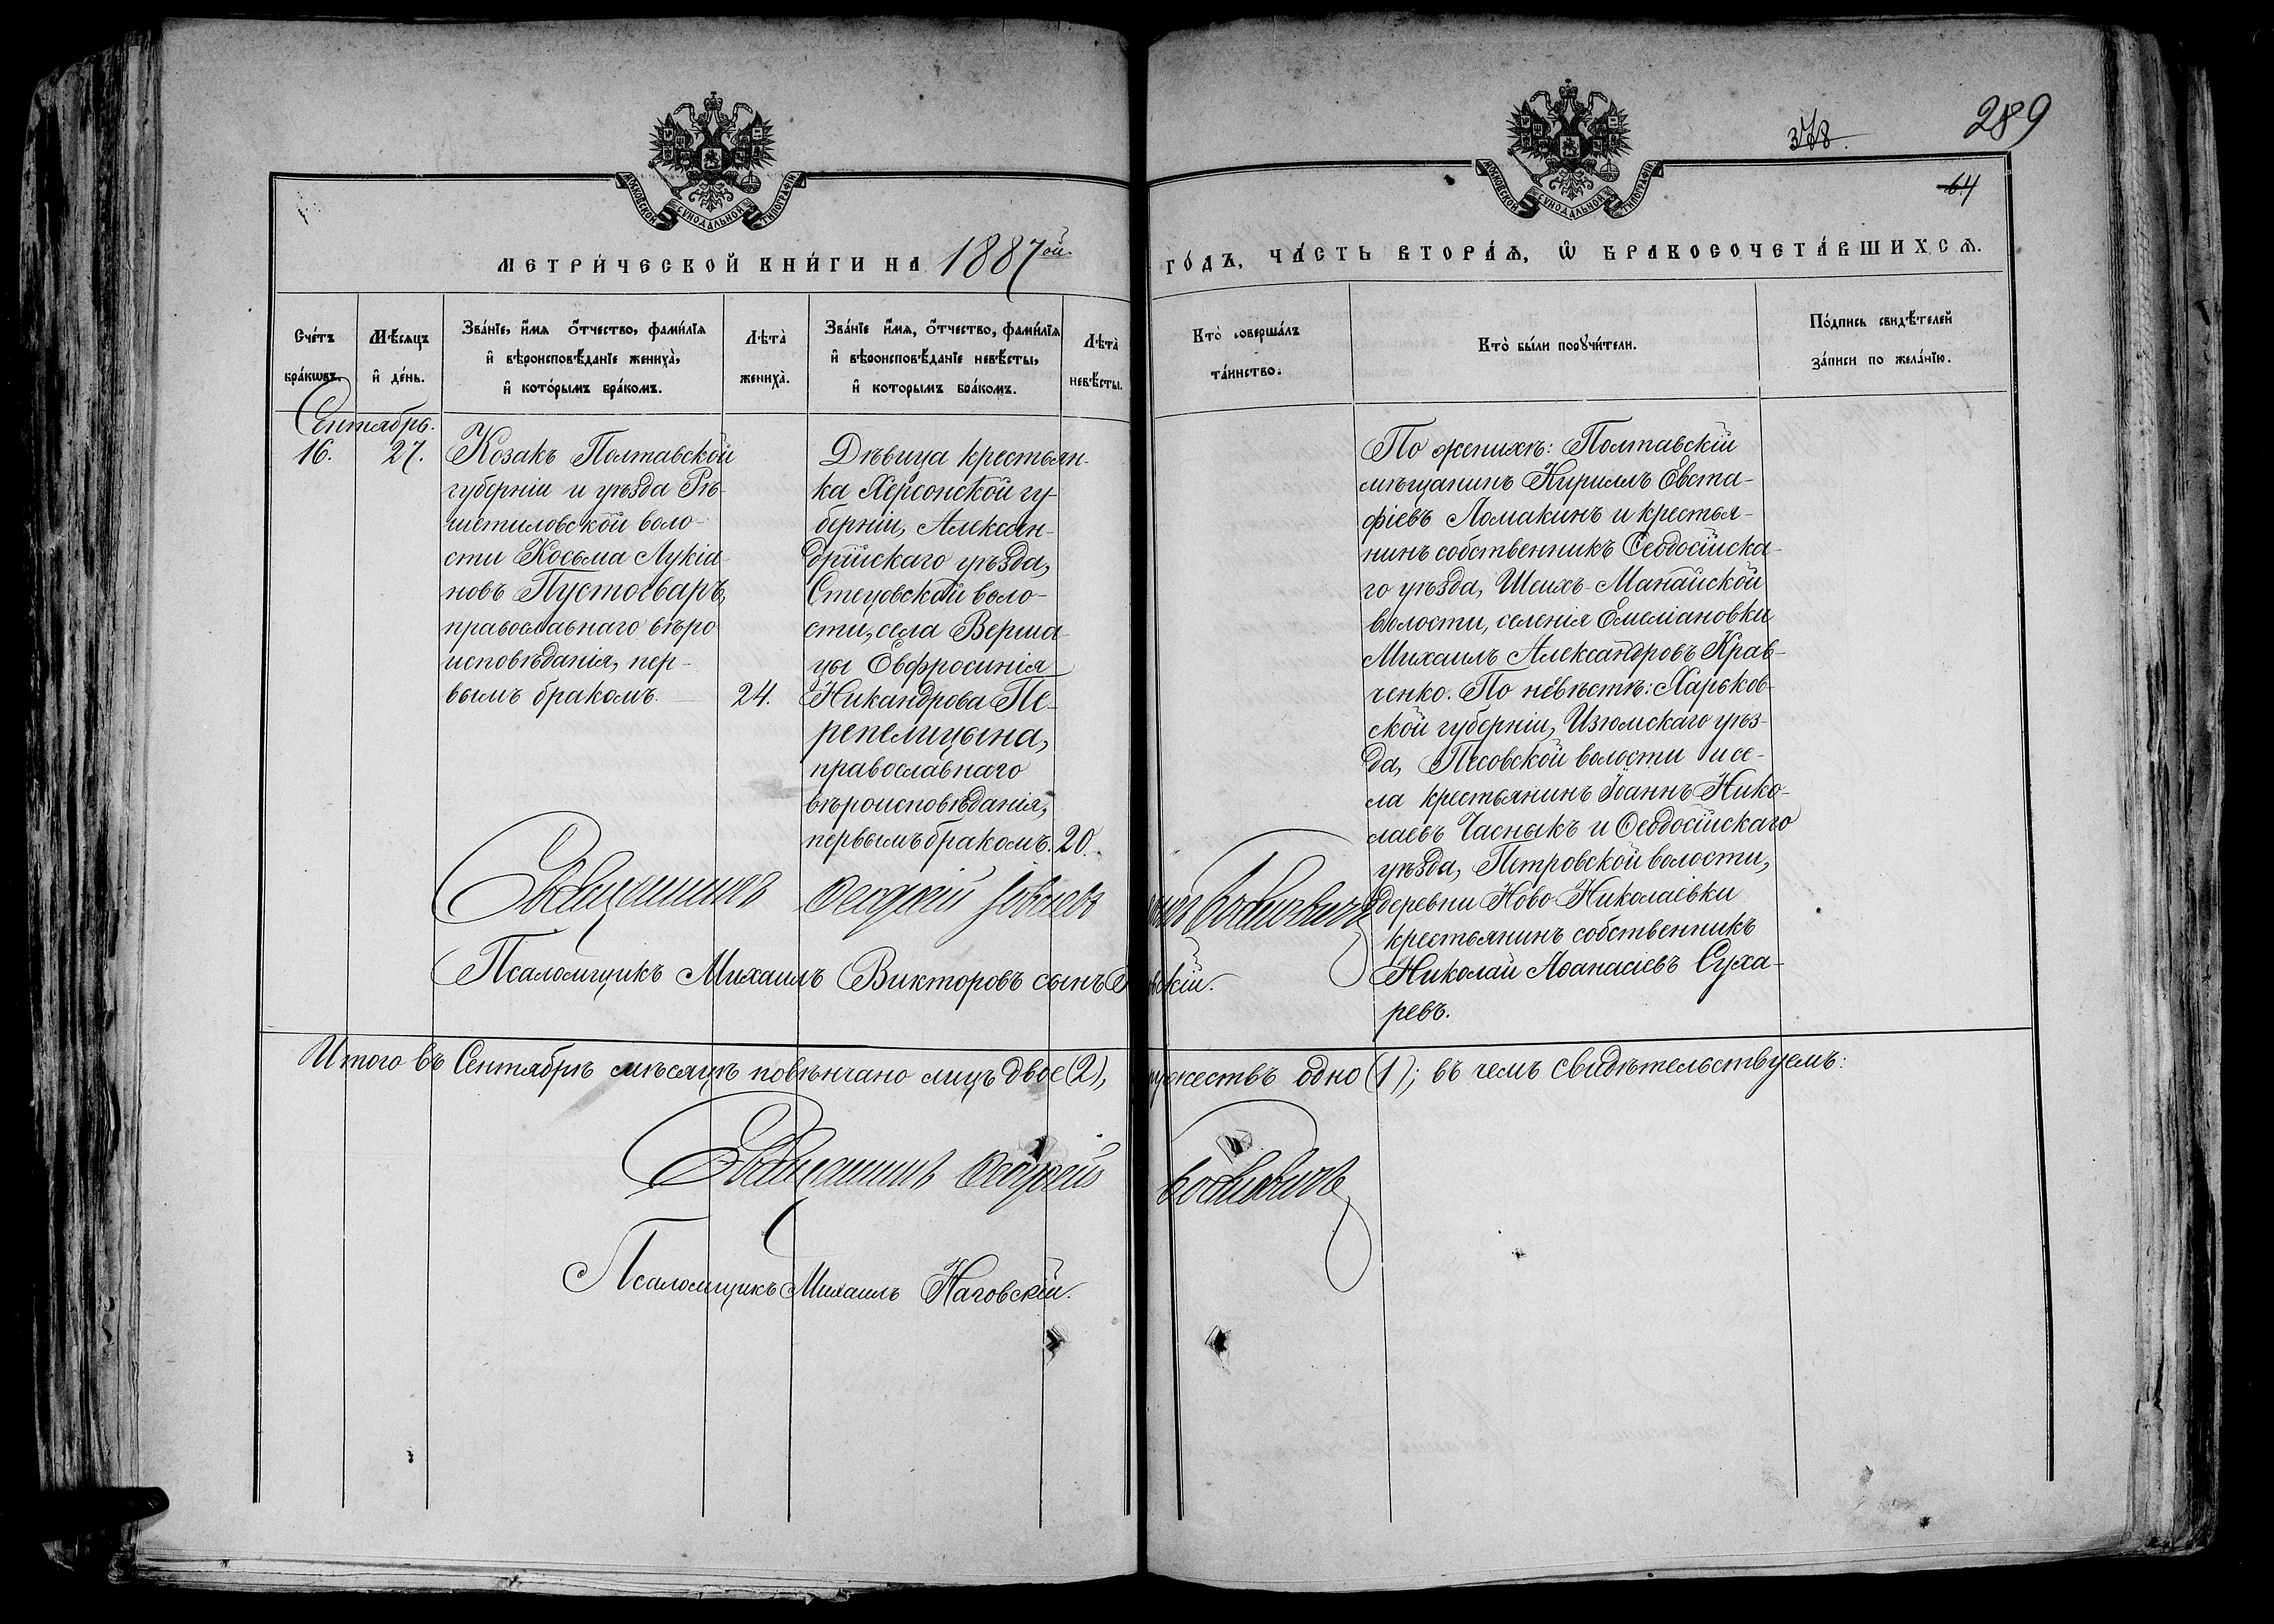 289
378.
64
МОСКОВСКОЙ СУНОДАЛЬНОЙ ТИПОГРАФІИ
МОСКОВСКОЙ СУНОДАЛЬНОЙ ТИПОГРАФІИ
МЕТРИ́ЧЕСКОЙ КНИ́ГИ НА 1887ой.
ГО́ДЪ, ЧА́СТЬ ВТОРА́Ѧ, Ѡ҆ БРАКОСОЧЕТА́ВШИХСѦ.
Сче́тъ бра́кѡвъ.
Мѣ́сѧцъ и҆ де́нь.
Зва́нїе, и҆́мѧ ѻ҆́тчество, фами́лїѧ
и҆ вѣроисповѣ́данїе жениха̀,
и҆ кото́рымъ бра́комъ.
Лѣта̀ жениха̀.
Зва́нїе и҆́мѧ, ѻ҆́тчество, фами́лїѧ
и҆ вѣроисповѣ́данїе невѣ́сты,
и҆ которымъ бра́комъ.
Лѣта̀ невѣ́сты.
Кто̀ соверша́лъ
та́инство:
Кто̀ бы́ли порꙋчи́тели.
По́дпись свидѣ́телей
за́писи по жела́нїю.
Сентябрь.
16.
27.
Козакъ Полтавской
губерніи и уѣзда Рѣ-
шетиловской воло-
сти Косьма Лукіа-
новъ Пустоваръ,
православнаго вѣро
исповѣданія, пер-
вымъ бракомъ.
24.
Дѣвица крестьян-
ка Херсонской гу-
берніи, Алексан-
дрійскаго уѣзда,
Стецовской воло-
сти, села Верша-
цы Евфросинія
Никандрова Пе-
репелицына,
православнаго
вѣроисповѣданія,
первымъ бракомъ.
20.
По женихѣ: Полтавскій
мѣщанинъ Кириллъ Евста-
фіевъ Ломакинъ и крестья-
нинъ собственникъ Ѳеодосійска-
го уѣзда, Шеихъ-Манайской
волости, селенія Емеліановки
Михаилъ Александровъ Крав-
ченко. По невѣстѣ: Харьков-
ской губерніи, Изюмскаго уѣз-
да, Песовской волости и се-
ла крестьянинъ Іоаннъ Нико-
лаевъ Часныкъ и Ѳеодосійскаго
уѣзда, Петровской волости,
деревни Ново-Николаевки
крестьянинъ собственникъ
Николай Аѳанасіевъ Суха-
ревъ.
Священникъ
Псаломщикъ Михаилъ Викторовъ сынъ
вскій.
Итого въ Сентябрѣ мѣсяцѣ повѣнчано лицъ двое (2),
ужествъ одно (1); въ чемъ свидѣтельствуемъ:
Священникъ
Псаломщикъ Михаилъ Наговскій.